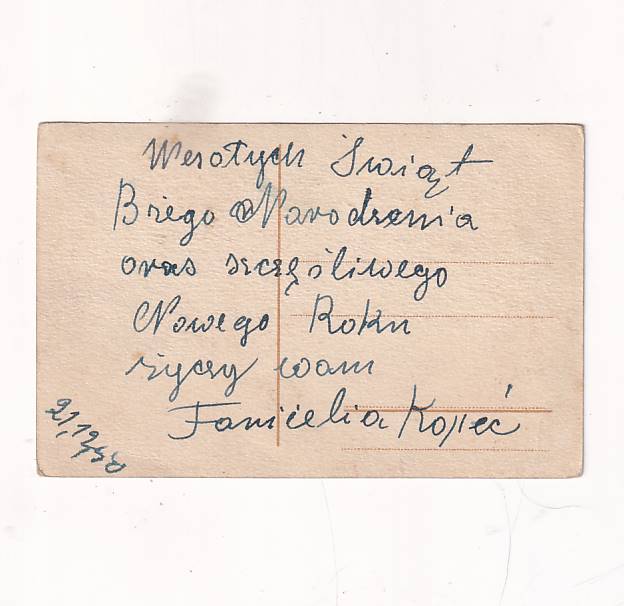 Wesołych Świąt
Bżego Narodzenia
oraz szczęśliwego
Nowego Roku
życzy wam
Famielia Kopeć